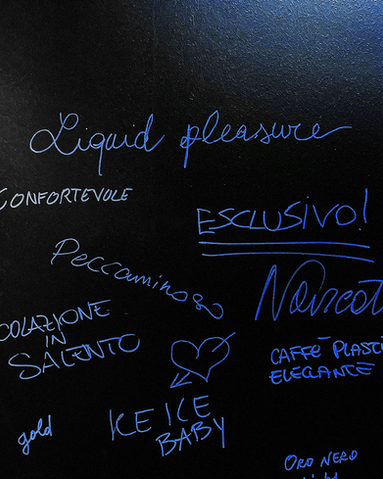 Liquid pleasure
CONFORTEVOLE
ESCLUSIVO!
Peccaminoso
COLAZIONE
IN
SALENTO
CAFFÈ PLASTI
ELEGANTE
gold
ICE ICE
BABY
ORO NERO